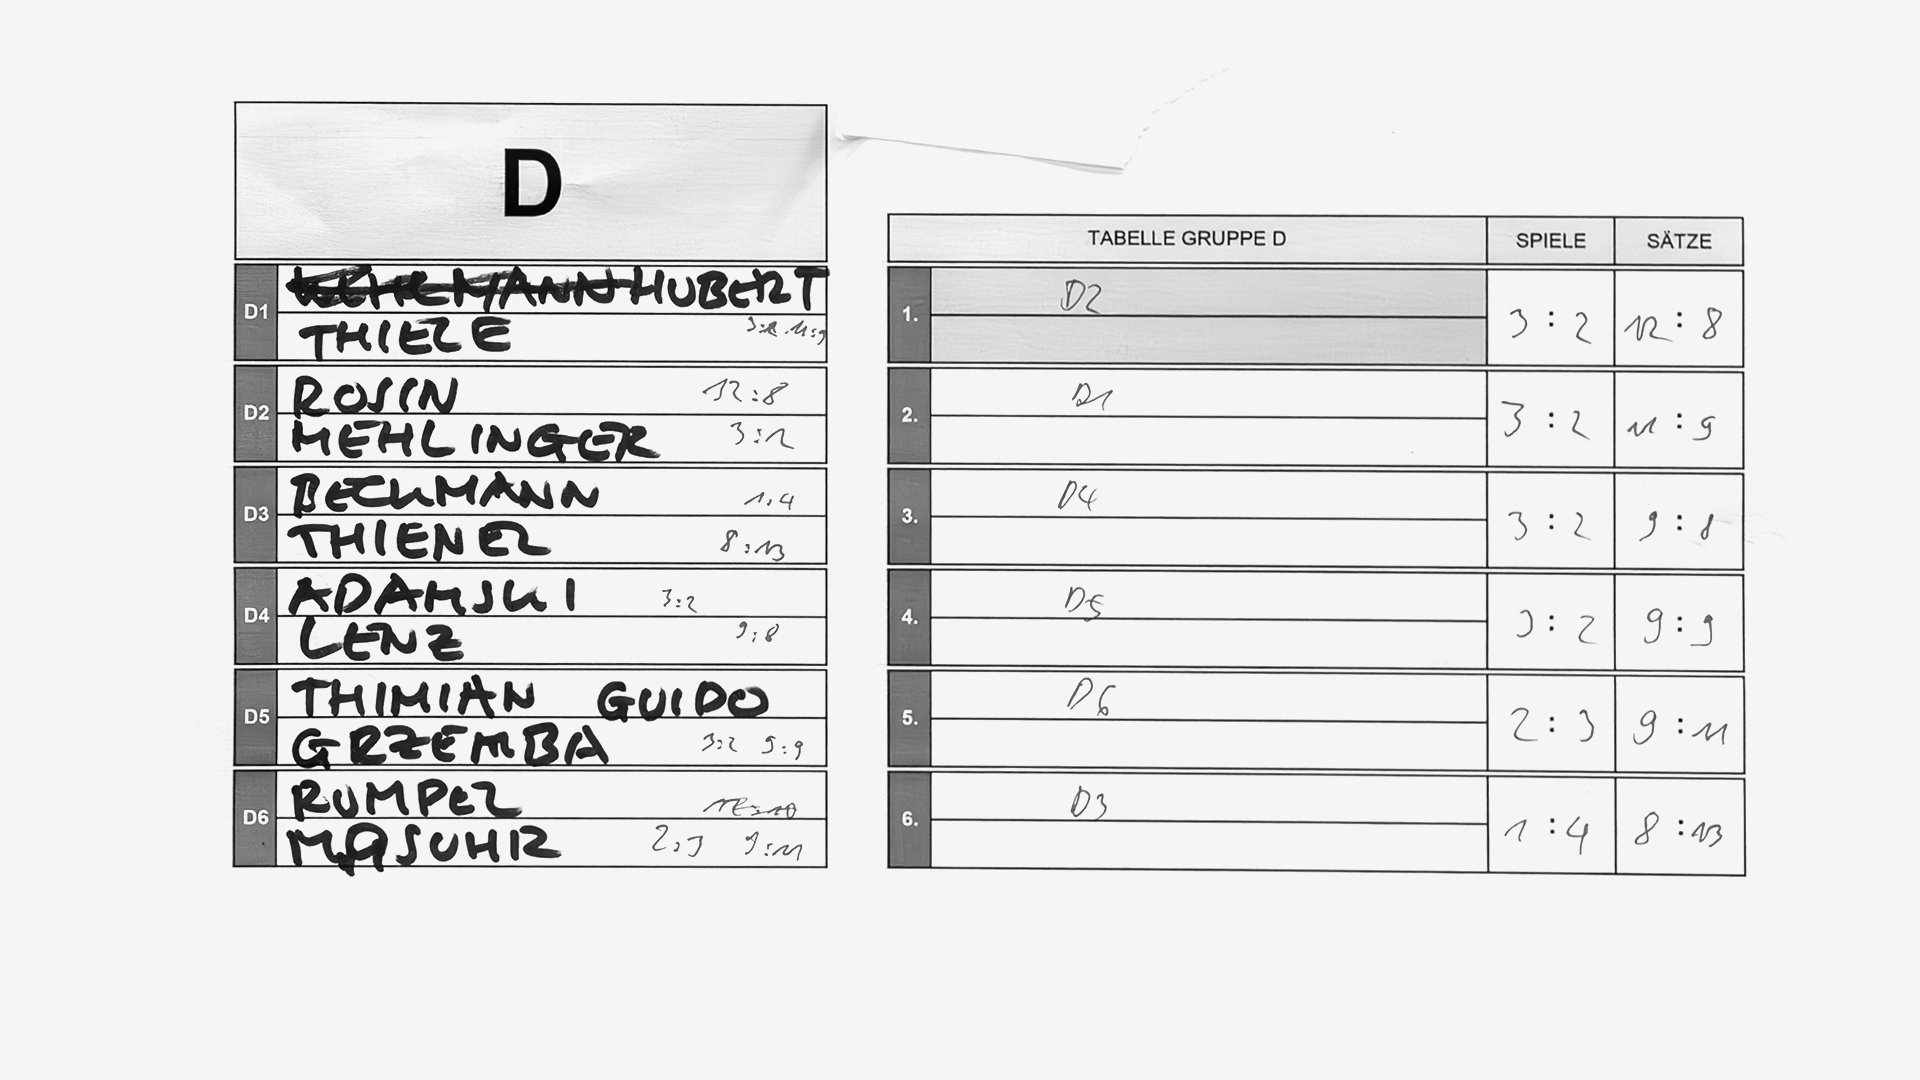 D
D1
HUBERT
THIELE 3:2 11:9
D2
ROSIN 12:8
MEHLINGER 3:2
D3
BECKMANN 1:4
THIENEL 8:13
D4
ADAMSKI 3:2
LENZ 9:8
D5
THIMIAN GUIDO
GRZEMBA 3:2 9:9
D6
RUMPEL
MASUHR 2:3 9:11
TABELLE GRUPPE D SPIELE SÄTZE
1. D2 3 : 2 12 : 8
2. D1 3 : 2 11 : 9
3. D4 3 : 2 9 : 8
4. D5 3 : 2 9 : 9
5. D6 2 : 3 9 : 11
6. D3 1 : 4 8 : 13